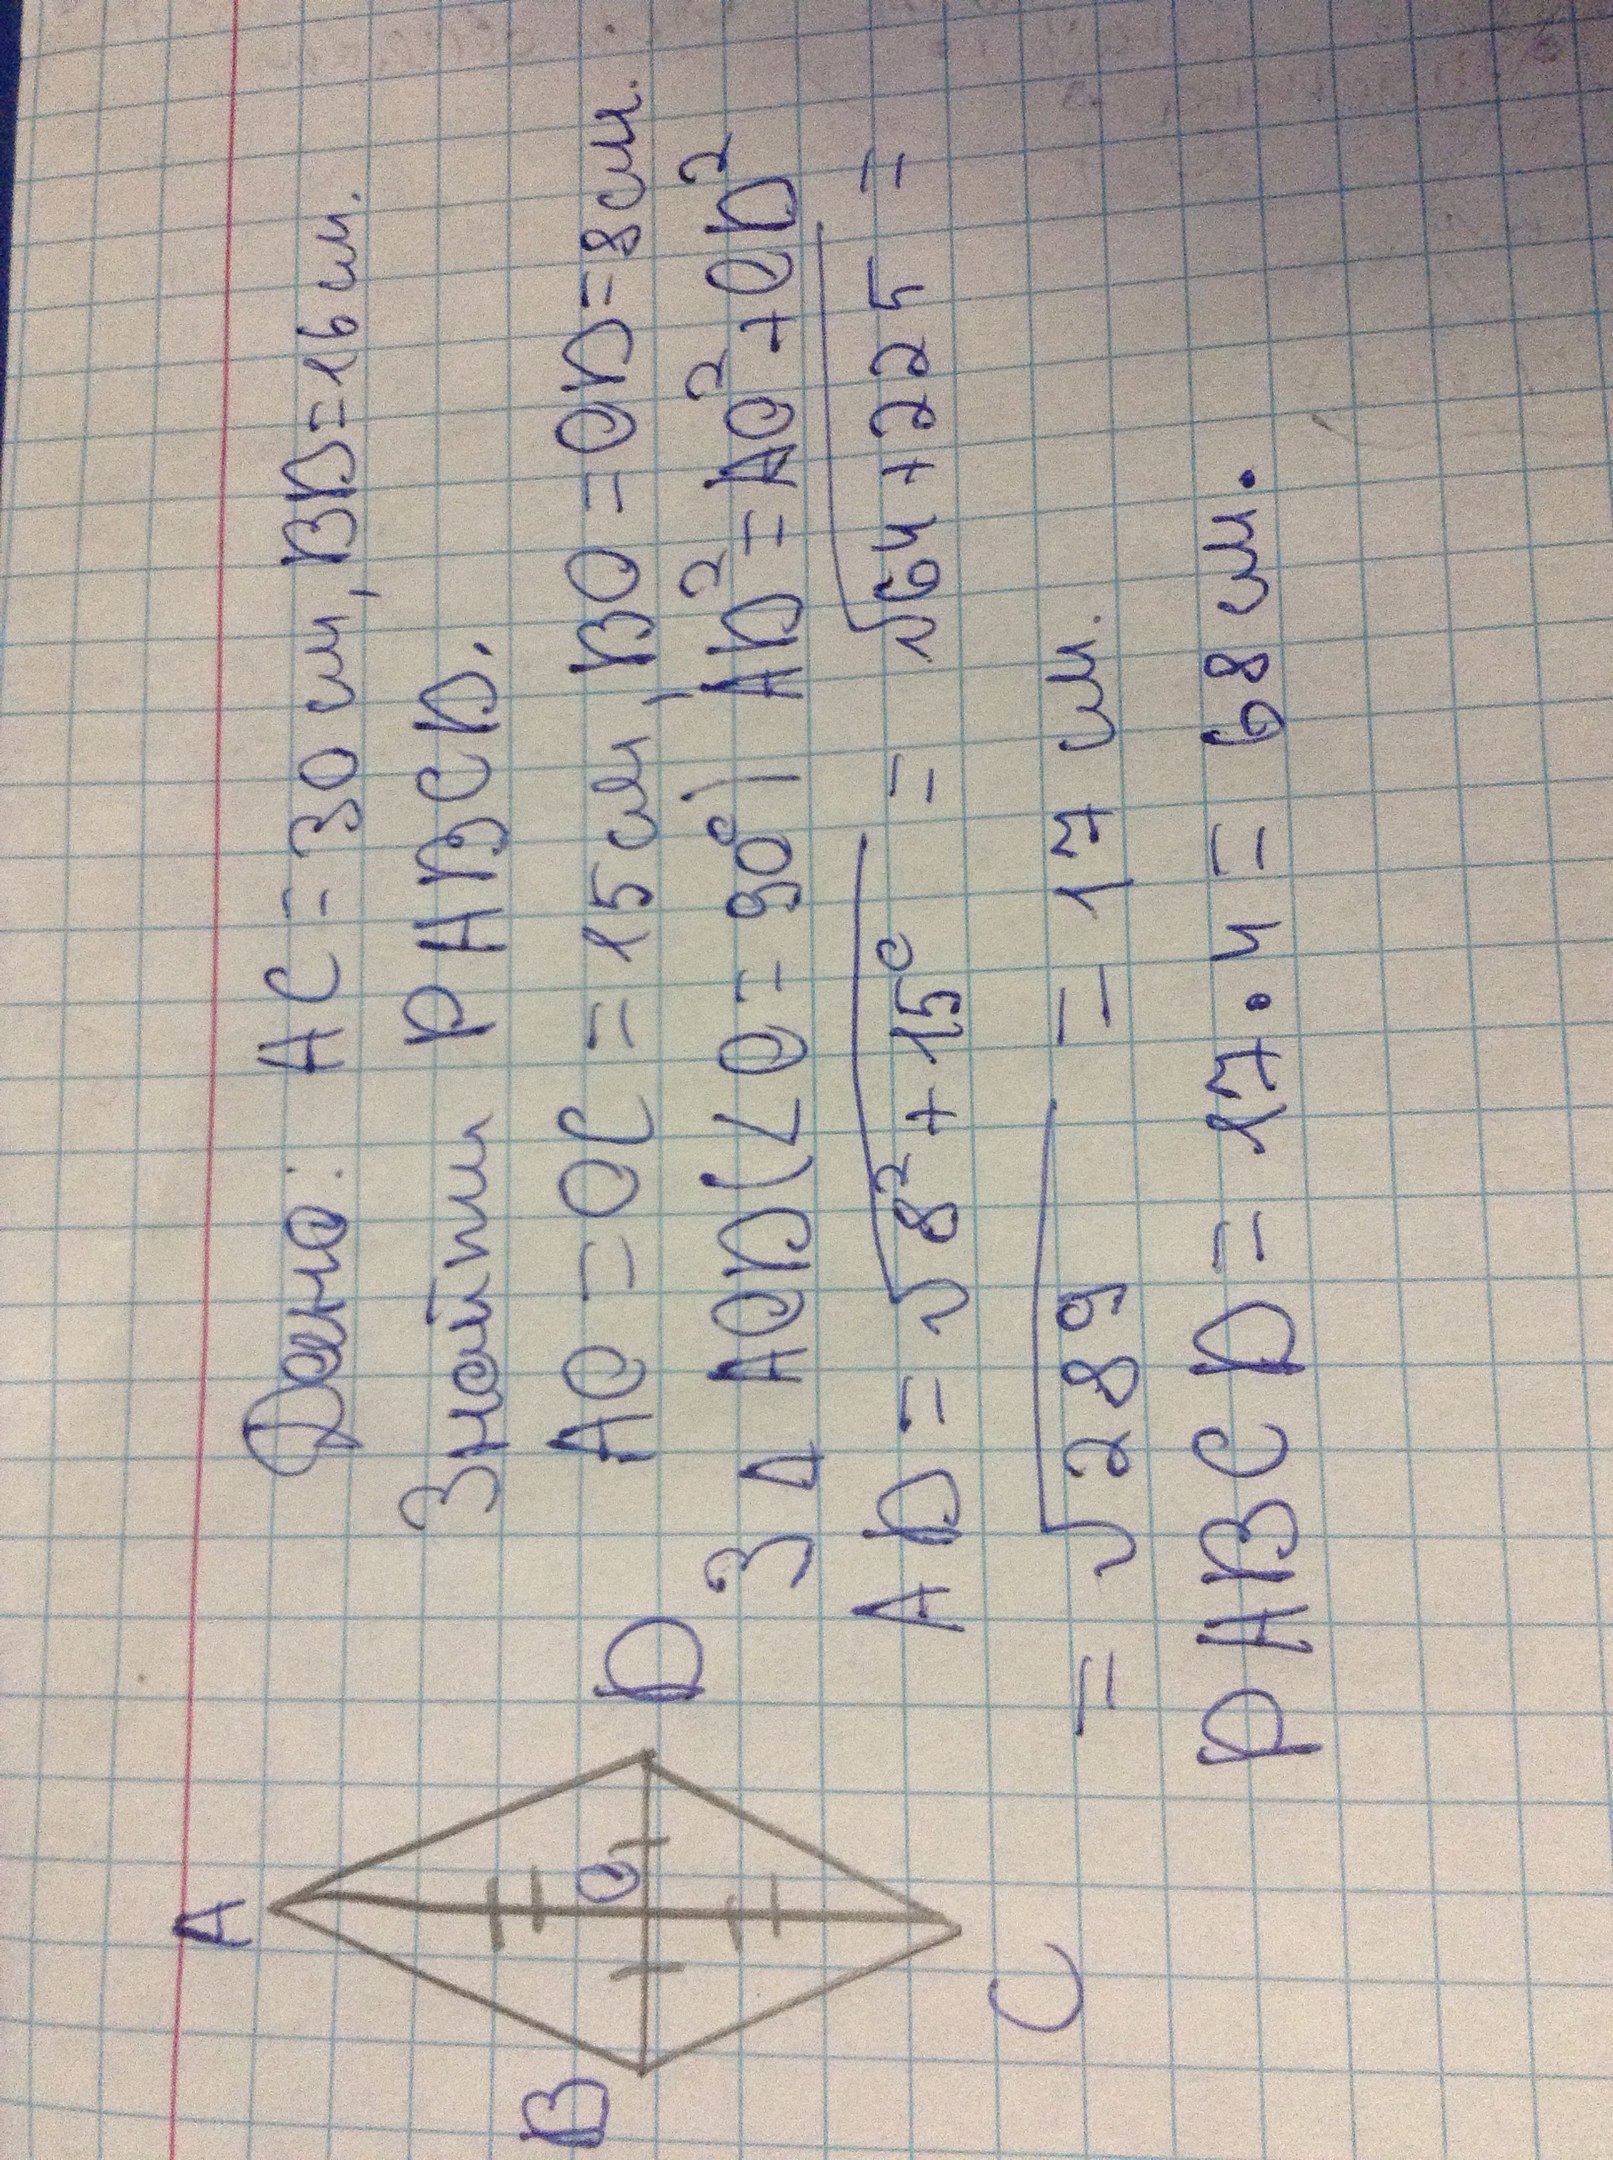 Дано: AC = 30 см, BD = 16 см.
Знайти PABCD.
AO = OC = 15 см, BO = OD = 8 см.
З Δ AOD (∠O = 90°) AD² = AO² + OD²
AD = √8² + 15² = √64 + 225 =
= √289 = 17 см.
PABCD = 17 · 4 = 68 см.
A
B
O
D
C